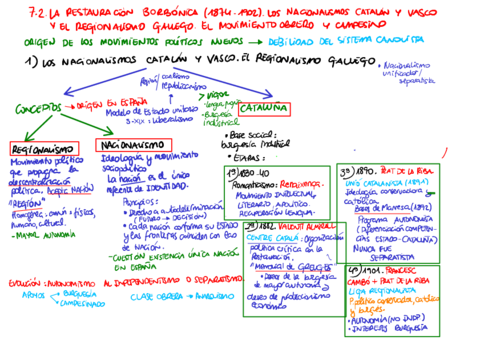 7.2. LA RESTAURACIÓN BORBÓNICA (1874-1902). LOS NACIONALISMOS CATALÁN Y VASCO
Y EL REGIONALISMO GALLEGO. EL MOVIMIENTO OBRERO Y CAMPESINO
ORIGEN DE LOS MOVIMIENTOS POLÍTICOS NUEVOS → DEBILIDAD DEL SISTEMA CANOVISTA
1) LOS NACIONALISMOS CATALÁN Y VASCO. EL REGIONALISMO GALLEGO.
• Nacionalismo
unificador/
separatista
republicanismo
CONCEPTOS → ORIGEN EN ESPAÑA
Modelo de Estado unitario
S. XIX: liberalismo
> Vigor
- Lengua propia
- Burguesía
industrial
CATALUÑA
• Base Social:
burguesía industrial
• ETAPAS:
REGIONALISMO
Movimiento político
que propugna la
descentralización
política.
"REGIÓN"
Homogénea, común: físicas,
humanas, cultural.
- MAYOR AUTONOMÍA
NACIONALISMO
Ideología y movimiento
sociopolítico
La nación es el único
referente de IDENTIDAD.
Principios:
• Derecho a autodeterminación
(PUEBLO → DECISIÓN)
• Cada nación conforma su ESTADO
y las fronteras coinciden con BASE
de NACIÓN.
- CUESTIÓN EXISTENCIA ÚNICA NACIÓN
EN ESPAÑA
EVOLUCIÓN: AUTONOMISMO AL INDEPENDENTISMO O SEPARATISMO.
APOYOS
BURGUESÍA
CAMPESINADO
CLASE OBRERA → ANARQUISMO
1º) 1830-40
Romanticismo: Renaixença.
MOVIMIENTO INTELECTUAL,
LITERARIO, APOLÍTICO.
RECUPERACIÓN LENGUA.
2º) 1882. VALENTÍ ALMIRALL
CENTRE CATALÀ: Organización
política crítica con la
Restauración.
"Memorial de GREUGES"
• Deseo de la burguesía
de mayor autonomía y
deseos de proteccionismo
económico
3º) 1890. PRAT DE LA RIBA
UNIÓ CATALANISTA (1891)
Ideología conservadora y
católica
Bases de Manresa (1892)
Programa AUTONOMÍA
(diferenciación COMPETEN-
CIAS ESTADO-CATALUÑA)
NUNCA FUE
SEPARATISTA
4º) 1901. FRANCESC
CAMBÓ + PRAT DE LA RIBA
LLIGA REGIONALISTA
Política conservadora, católica
y burguesa.
• AUTONOMÍA (NO INDP)
• INTERESES BURGUESÍA